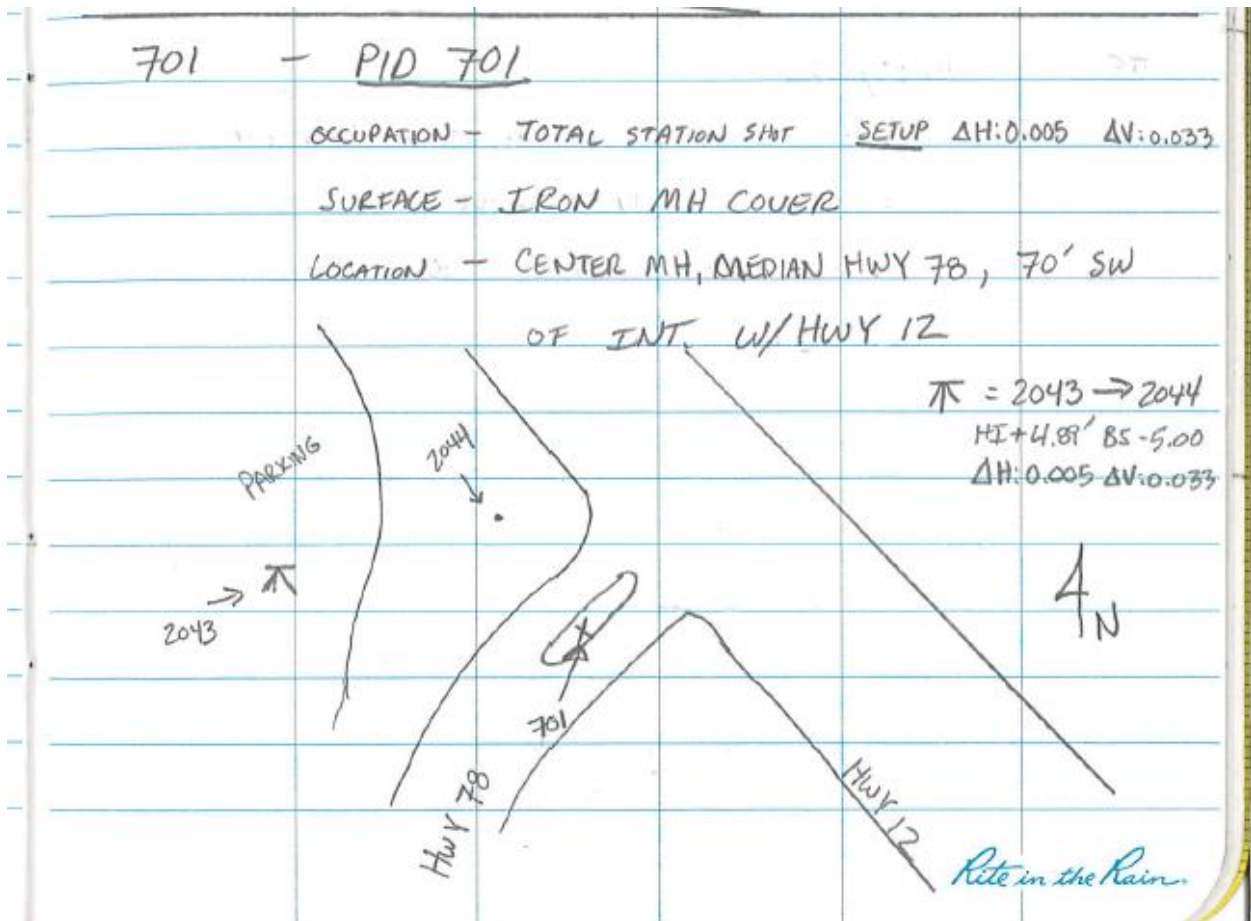 701 - PID 701
OCCUPATION - TOTAL STATION SHOT SETUP ΔH:0.005 ΔV:0.033
SURFACE - IRON MH COVER
LOCATION - CENTER MH, MEDIAN HWY 78, 70' SW
OF INT. W/HWY 12
= 2043 → 2044
HI+4.89' BS-5.00
ΔH:0.005 ΔV:0.033
PARKING
2044
2043
N
701
HWY 78
HWY 12
Rite in the Rain